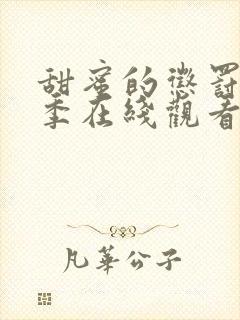 甜蜜的懲罰
季在綫觀看
凡華公子